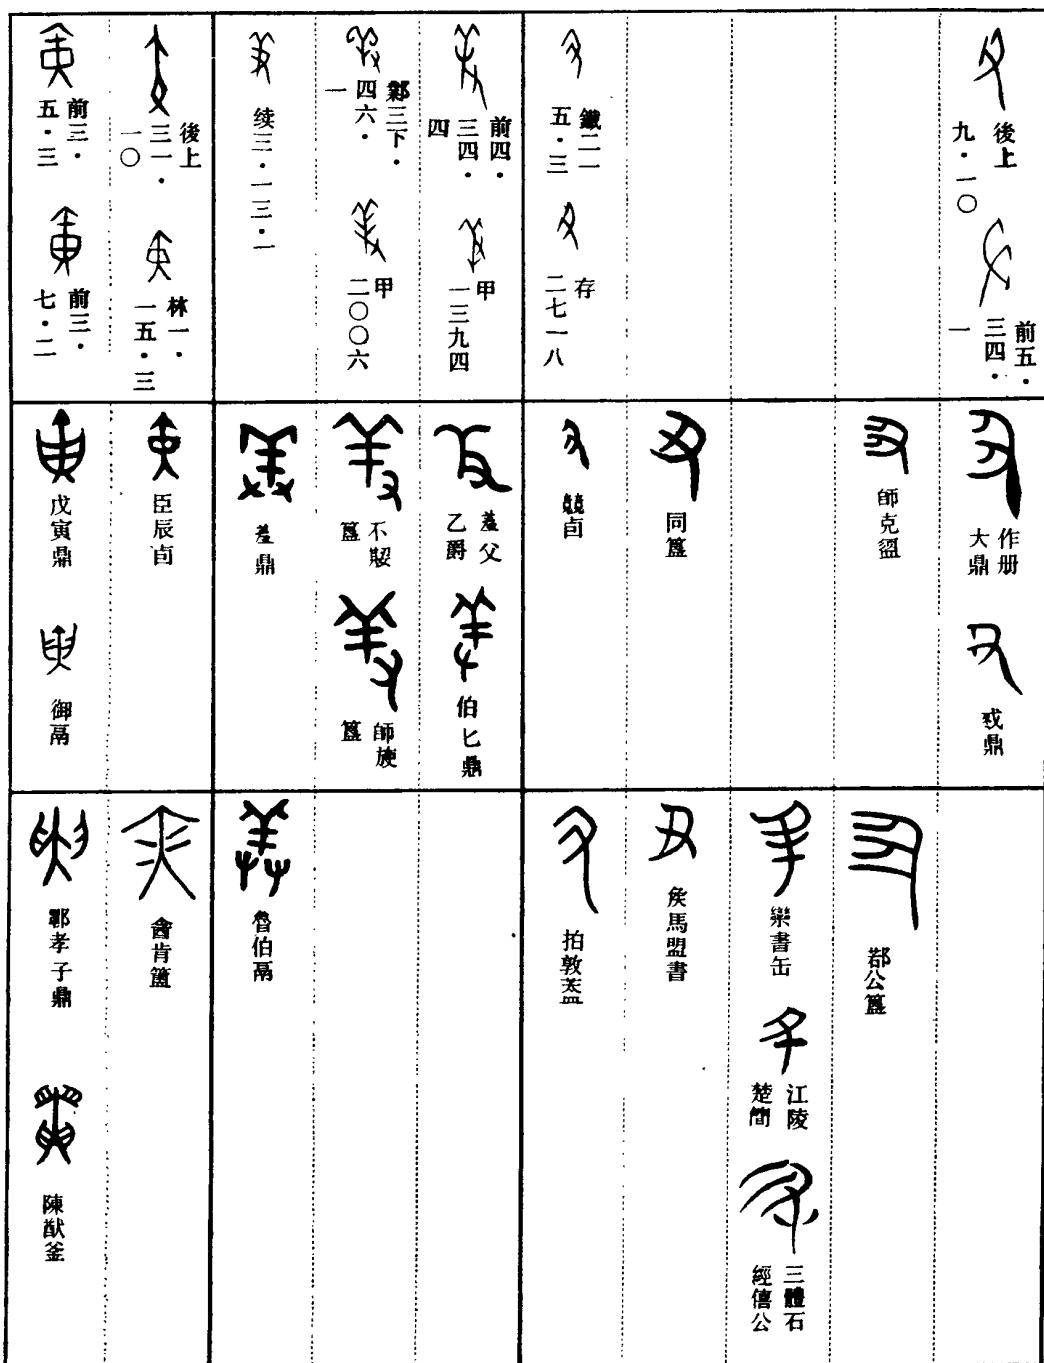 後上
九·一〇
前五·
三四·
一
鐵二一
五·三
存
二七一八
前四·
三四·
四
甲
一三九四
鄴三下·
四六·
一
甲
二〇〇六
续三·一三·一
後上
三一·
一〇
林一·
一五·三
前三·
五·三
前三·
七·二
作册
大鼎
戎鼎
師克盨
同簋
競卣
羞父
乙爵
伯匕鼎
不𡢁
簋
師㝨
簋
羞鼎
臣辰卣
戊寅鼎
御鬲
鄀公簋
欒書缶
江陵
楚簡
三體石
經僖公
矦馬盟書
拍敦蓋
魯伯鬲
酓肯簠
鄲孝子鼎
陳猷釜